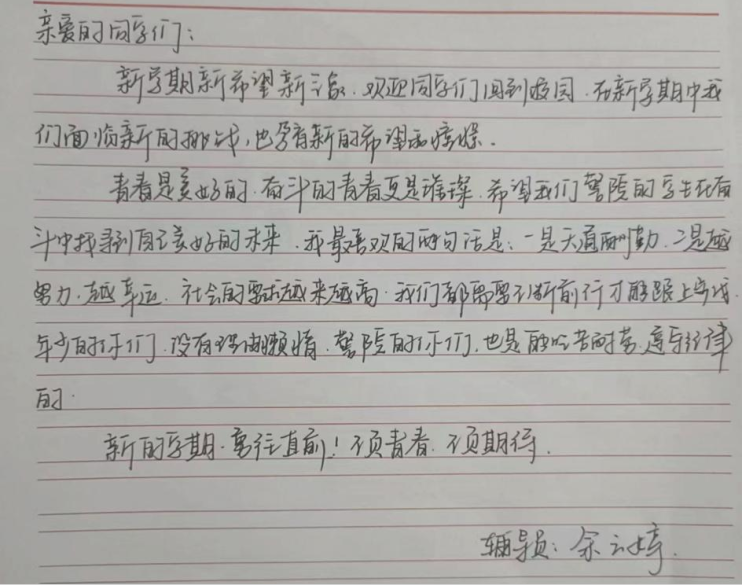 亲爱的同学们：
新学期新希望新气象．欢迎同学们回到校园．在新学期中我
们面临新的挑战，也孕育新的希望和憧憬．
青春是美好的．奋斗的青春更是璀璨．希望我们警院的学生在奋
斗中找寻到自己美好的未来．我最喜欢的两句话是：一是天道酬勤．二是越
努力．越幸运．社会的要求越来越高．我们都需要不断前行才能跟上步伐．
年少的你们．没有理由懒惰．警院的你们．也是能吃苦耐劳．遵守纪律
的．
新的学期．勇往直前！不负青春．不负期待．
辅导员：余云婷．